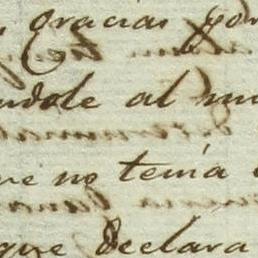 gracias por
ndole al m
ue no tenía
que declara